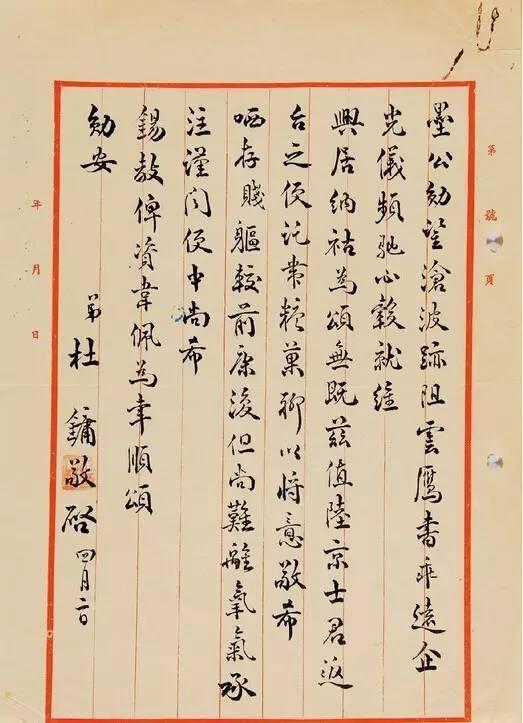 第 號 頁
墨公勛鑒滄波跡阻雲鴈書乖遠企
光儀頻馳心轂就維
興居納祜為頌無既茲值陸京士君返
台之便託帶糉菓聊以将意敬希
哂存賤軀較前康復但尚難離氧氣承
注謹聞便中尚希
錫教俾資韋佩為幸順頌
勛安
弟杜鏞敬啓 四月二日
年 月 日